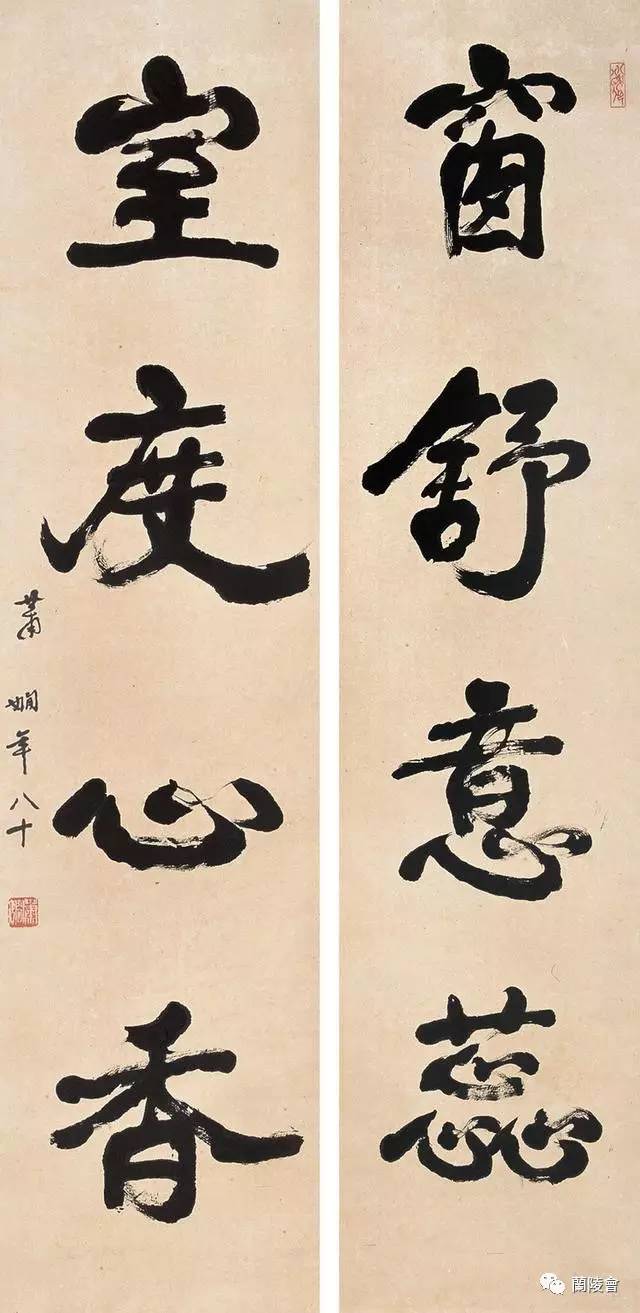 窗舒意蕊
室度心香
蕭嫻年八十
蘭陵會